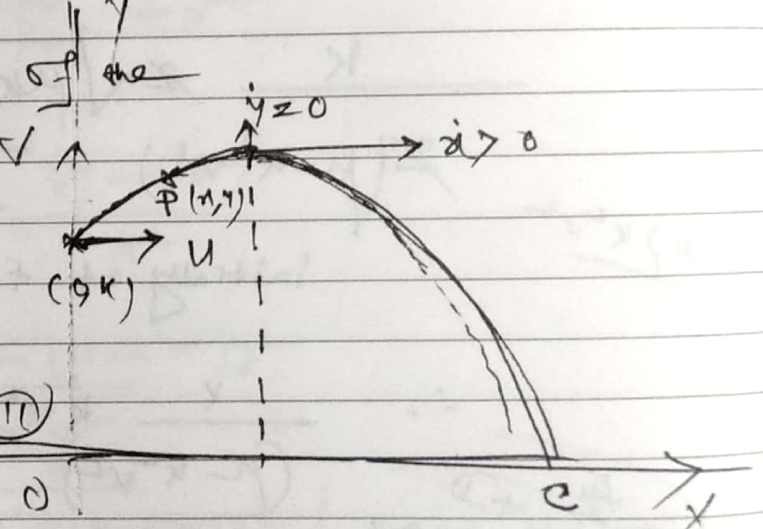 y
of the
ẏ = 0
V
ẋ > 0
P(x,y)
U
(0,k)
(11)
O
C
X